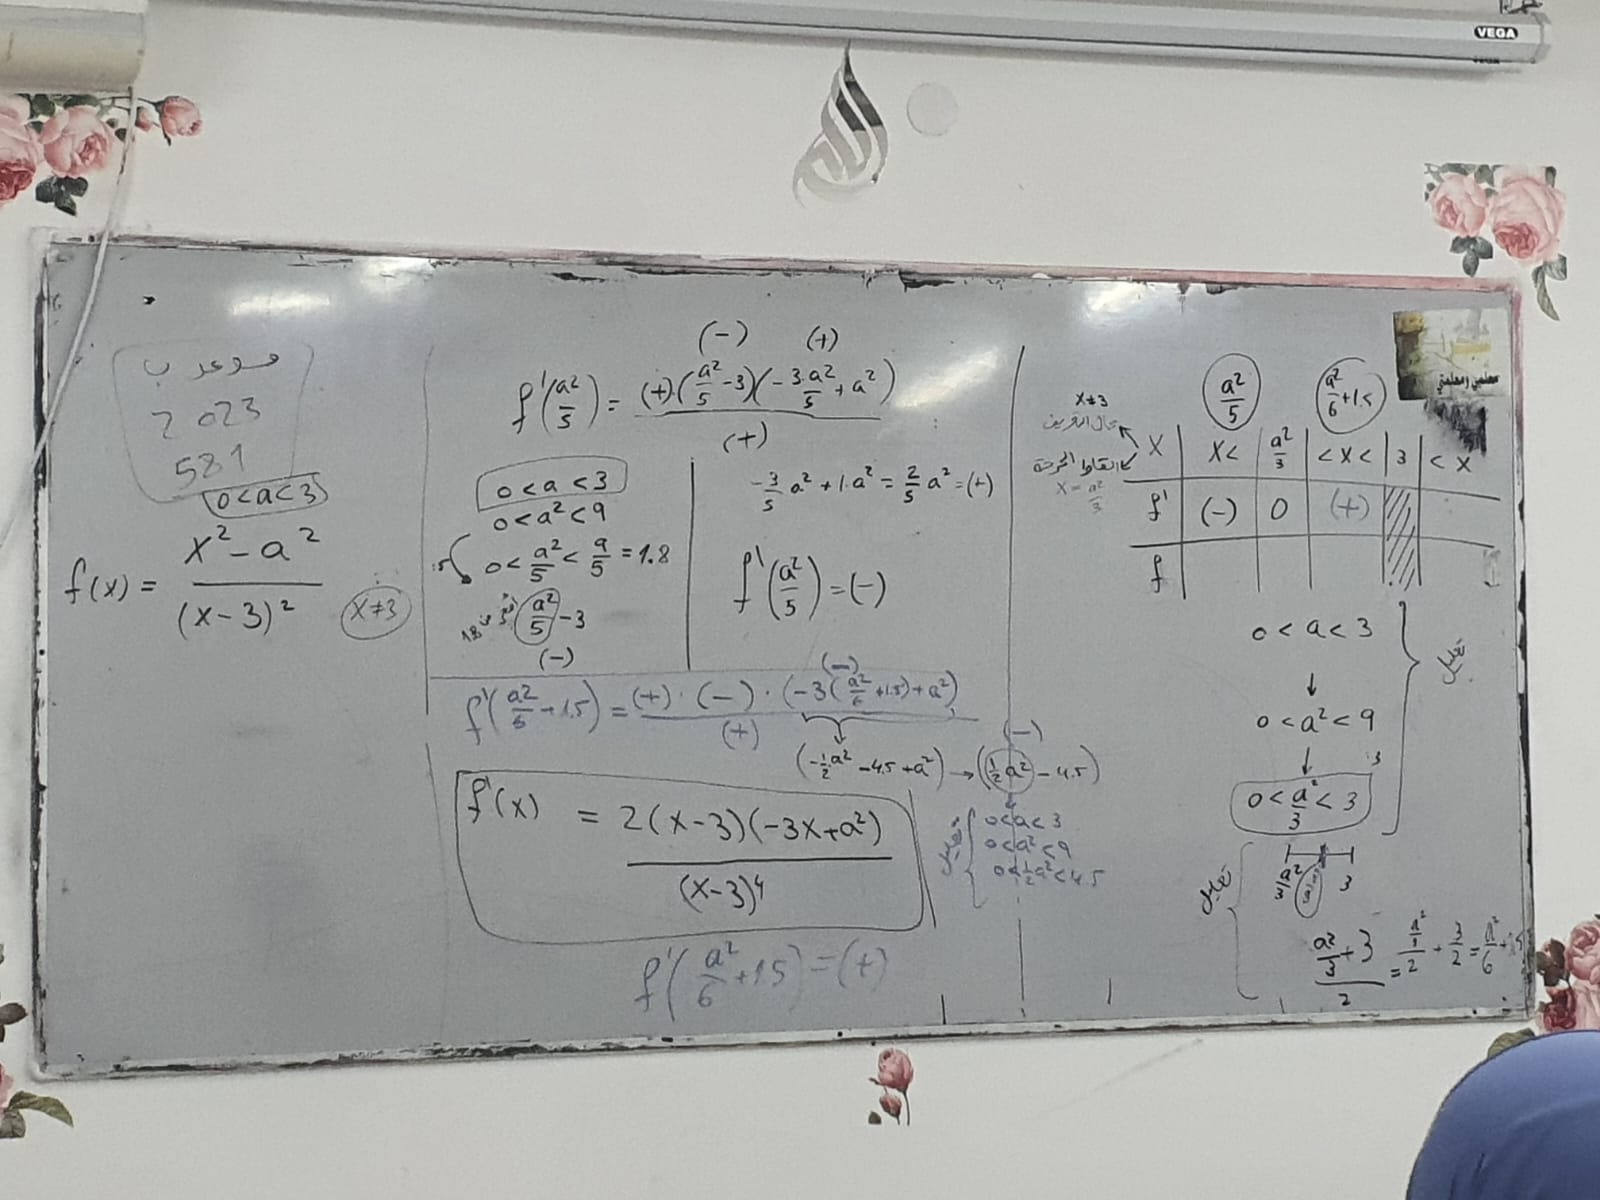 VEGA
الله
معلمي ومعلمتي
موعد ب
2023
581
0<a<3
f(x) = (x²-a²)/(x-3)²
x≠3
(-) (+)
f'(a²/5) = (+)·(a²/5-3)(-3·a²/5+a²)/(+)
0<a<3
0<a²<9
0<a²/5<9/5=1.8
a²/5-3
(-)
-3/5a²+1·a²=2/5a²=(+)
f'(a²/5)=(-)
(-)
f'(a²/6+1.5)=(+)·(-)·(-3(a²/6+1.5)+a²)/(+)
(-)
(-1/2a²-4.5+a²)→(1/2a²-4.5)
f'(x) = 2(x-3)(-3x+a²)/(x-3)⁴
تعليل
0<a<3
0<a²<9
0<1/2a²<4.5
f'(a²/6+1.5)=(+)
x≠3
مجال التعريف
النقاط الحرجة
x=a²/3
a²/5 a²/6+1.5
x x< a²/3 <x< 3 <x
f' (-) 0 (+)
f
0<a<3
↓
0<a²<9
↓
0<a²/3<3
تعليل
a²/3 3
تعليل
(a²/3+3)/2=(a²/3)/2+3/2=a²/6+1.5